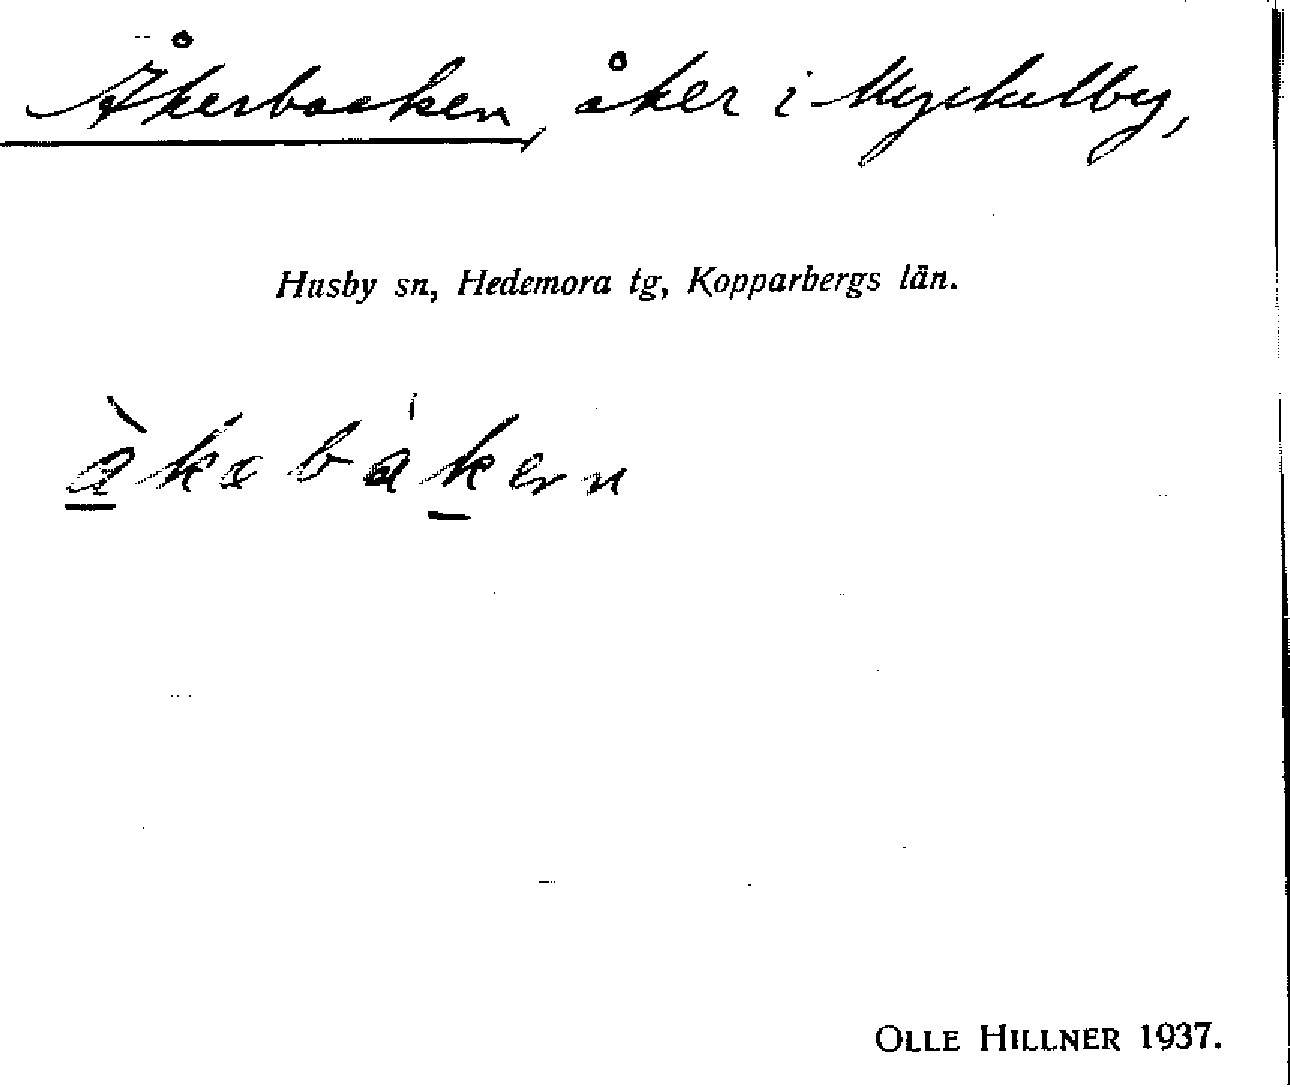 Åkerbacken, åker i Myckelby,
Husby sn, Hedemora tg, Kopparbergs län.
OLLE HILLNER 1937.